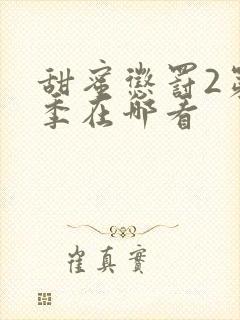 甜蜜惩罚2第
季在哪看
崔真實